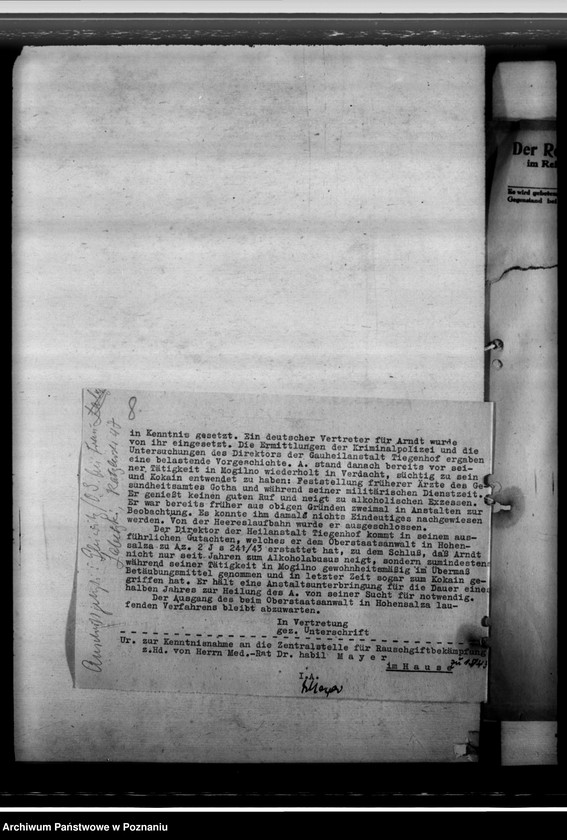 Der
im Rei
Es wird gebeten
Gegenstand
in Kenntnis gesetzt. Ein deutscher Vertreter für Arndt wurde
von ihr eingesetzt. Die Ermittlungen der Kriminalpolizei und die
Untersuchungen des Direktors der Gauheilanstalt Tiegenhof ergaben
eine belastende Vorgeschichte. A. stand danach bereits vor sei-
ner Tätigkeit in Mogilno wiederholt in Verdacht, süchtig zu sein
und Kokain entwendet zu haben: Feststellung früherer Ärzte des Ge-
sundheitsamtes Gotha und während seiner militärischen Dienstzeit.
Er genießt keinen guten Ruf und neigt zu alkoholischen Exzessen.
Er war bereits früher aus obigen Gründen zweimal in Anstalten zur
Beobachtung. Es konnte ihm damals nichts Eindeutiges nachgewiesen
werden. Von der Heereslaufbahn wurde er ausgeschlossen.
Der Direktor der Heilanstalt Tiegenhof kommt in seinem aus-
führlichen Gutachten, welches er dem Oberstaatsanwalt in Hohen-
salza zu Az. 2 J s 241/43 erstattet hat, zu dem Schluß, daß Arndt
nicht nur seit Jahren zum Alkoholabusus neigt, sondern zumindestens
während seiner Tätigkeit in Mogilno gewohnheitsmäßig im Übermaß
Betäubungsmittel genommen und in letzter Zeit sogar zum Kokain ge-
griffen hat. Er hält eine Anstaltsunterbringung für die Dauer eines
halben Jahres zur Heilung des A. von seiner Sucht für notwendig.
Der Ausgang des beim Oberstaatsanwalt in Hohensalza lau-
fenden Verfahrens bleibt abzuwarten.
In Vertretung
gez. Unterschrift
Ur. zur Kenntnisnahme an die Zentralstelle für Rauschgiftbekämpfung
z.Hd. von Herrn Med.-Rat Dr. habil M a y e r
im H a u s e
I.A.
Archiwum Państwowe w Poznaniu